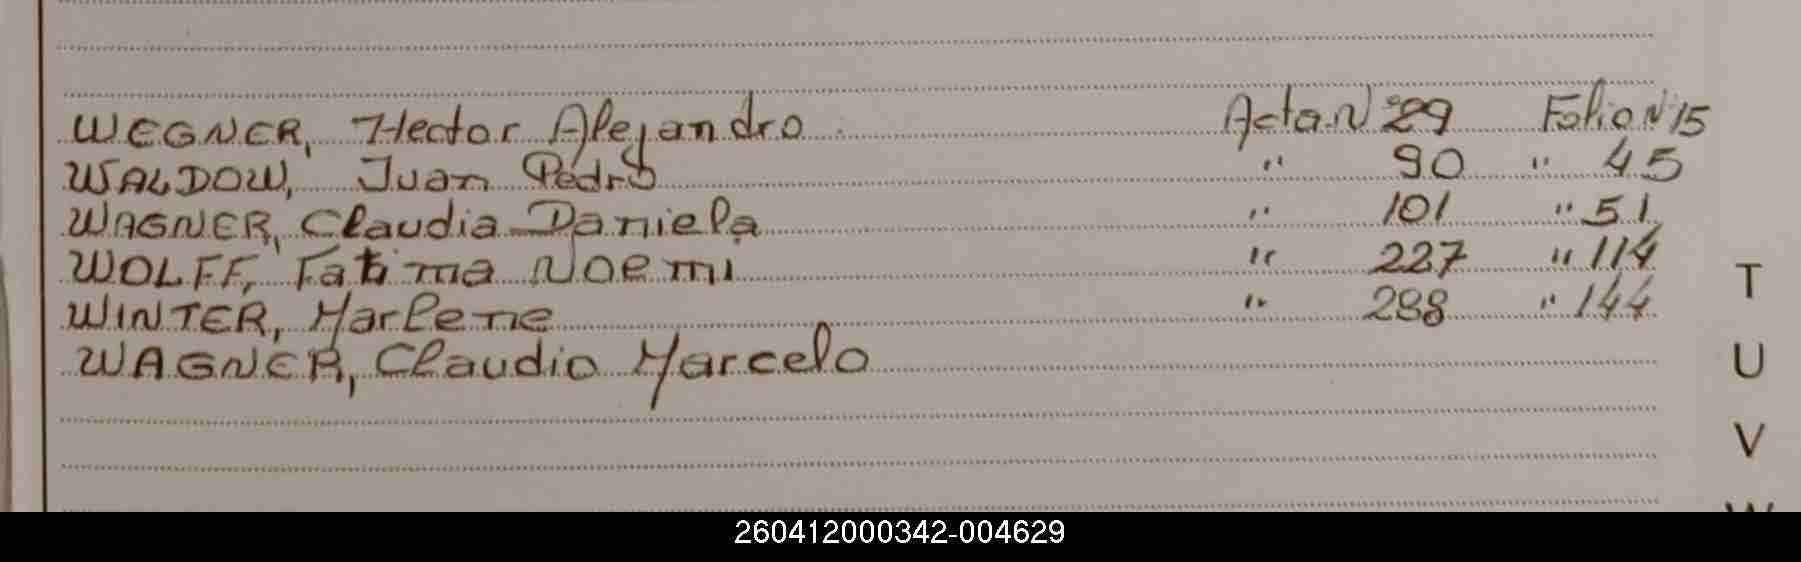 WEGNER, Hector Alejandro Acta N° 29 Folio N° 15
WALDOW, Juan Pedro " 90 " 45
WAGNER, Claudia Daniela " 101 " 51
WOLFF, Fatima Noemi " 227 " 114
WINTER, Marlene " 288 " 144
WAGNER, Claudio Marcelo
T
U
V
W
260412000342-004629